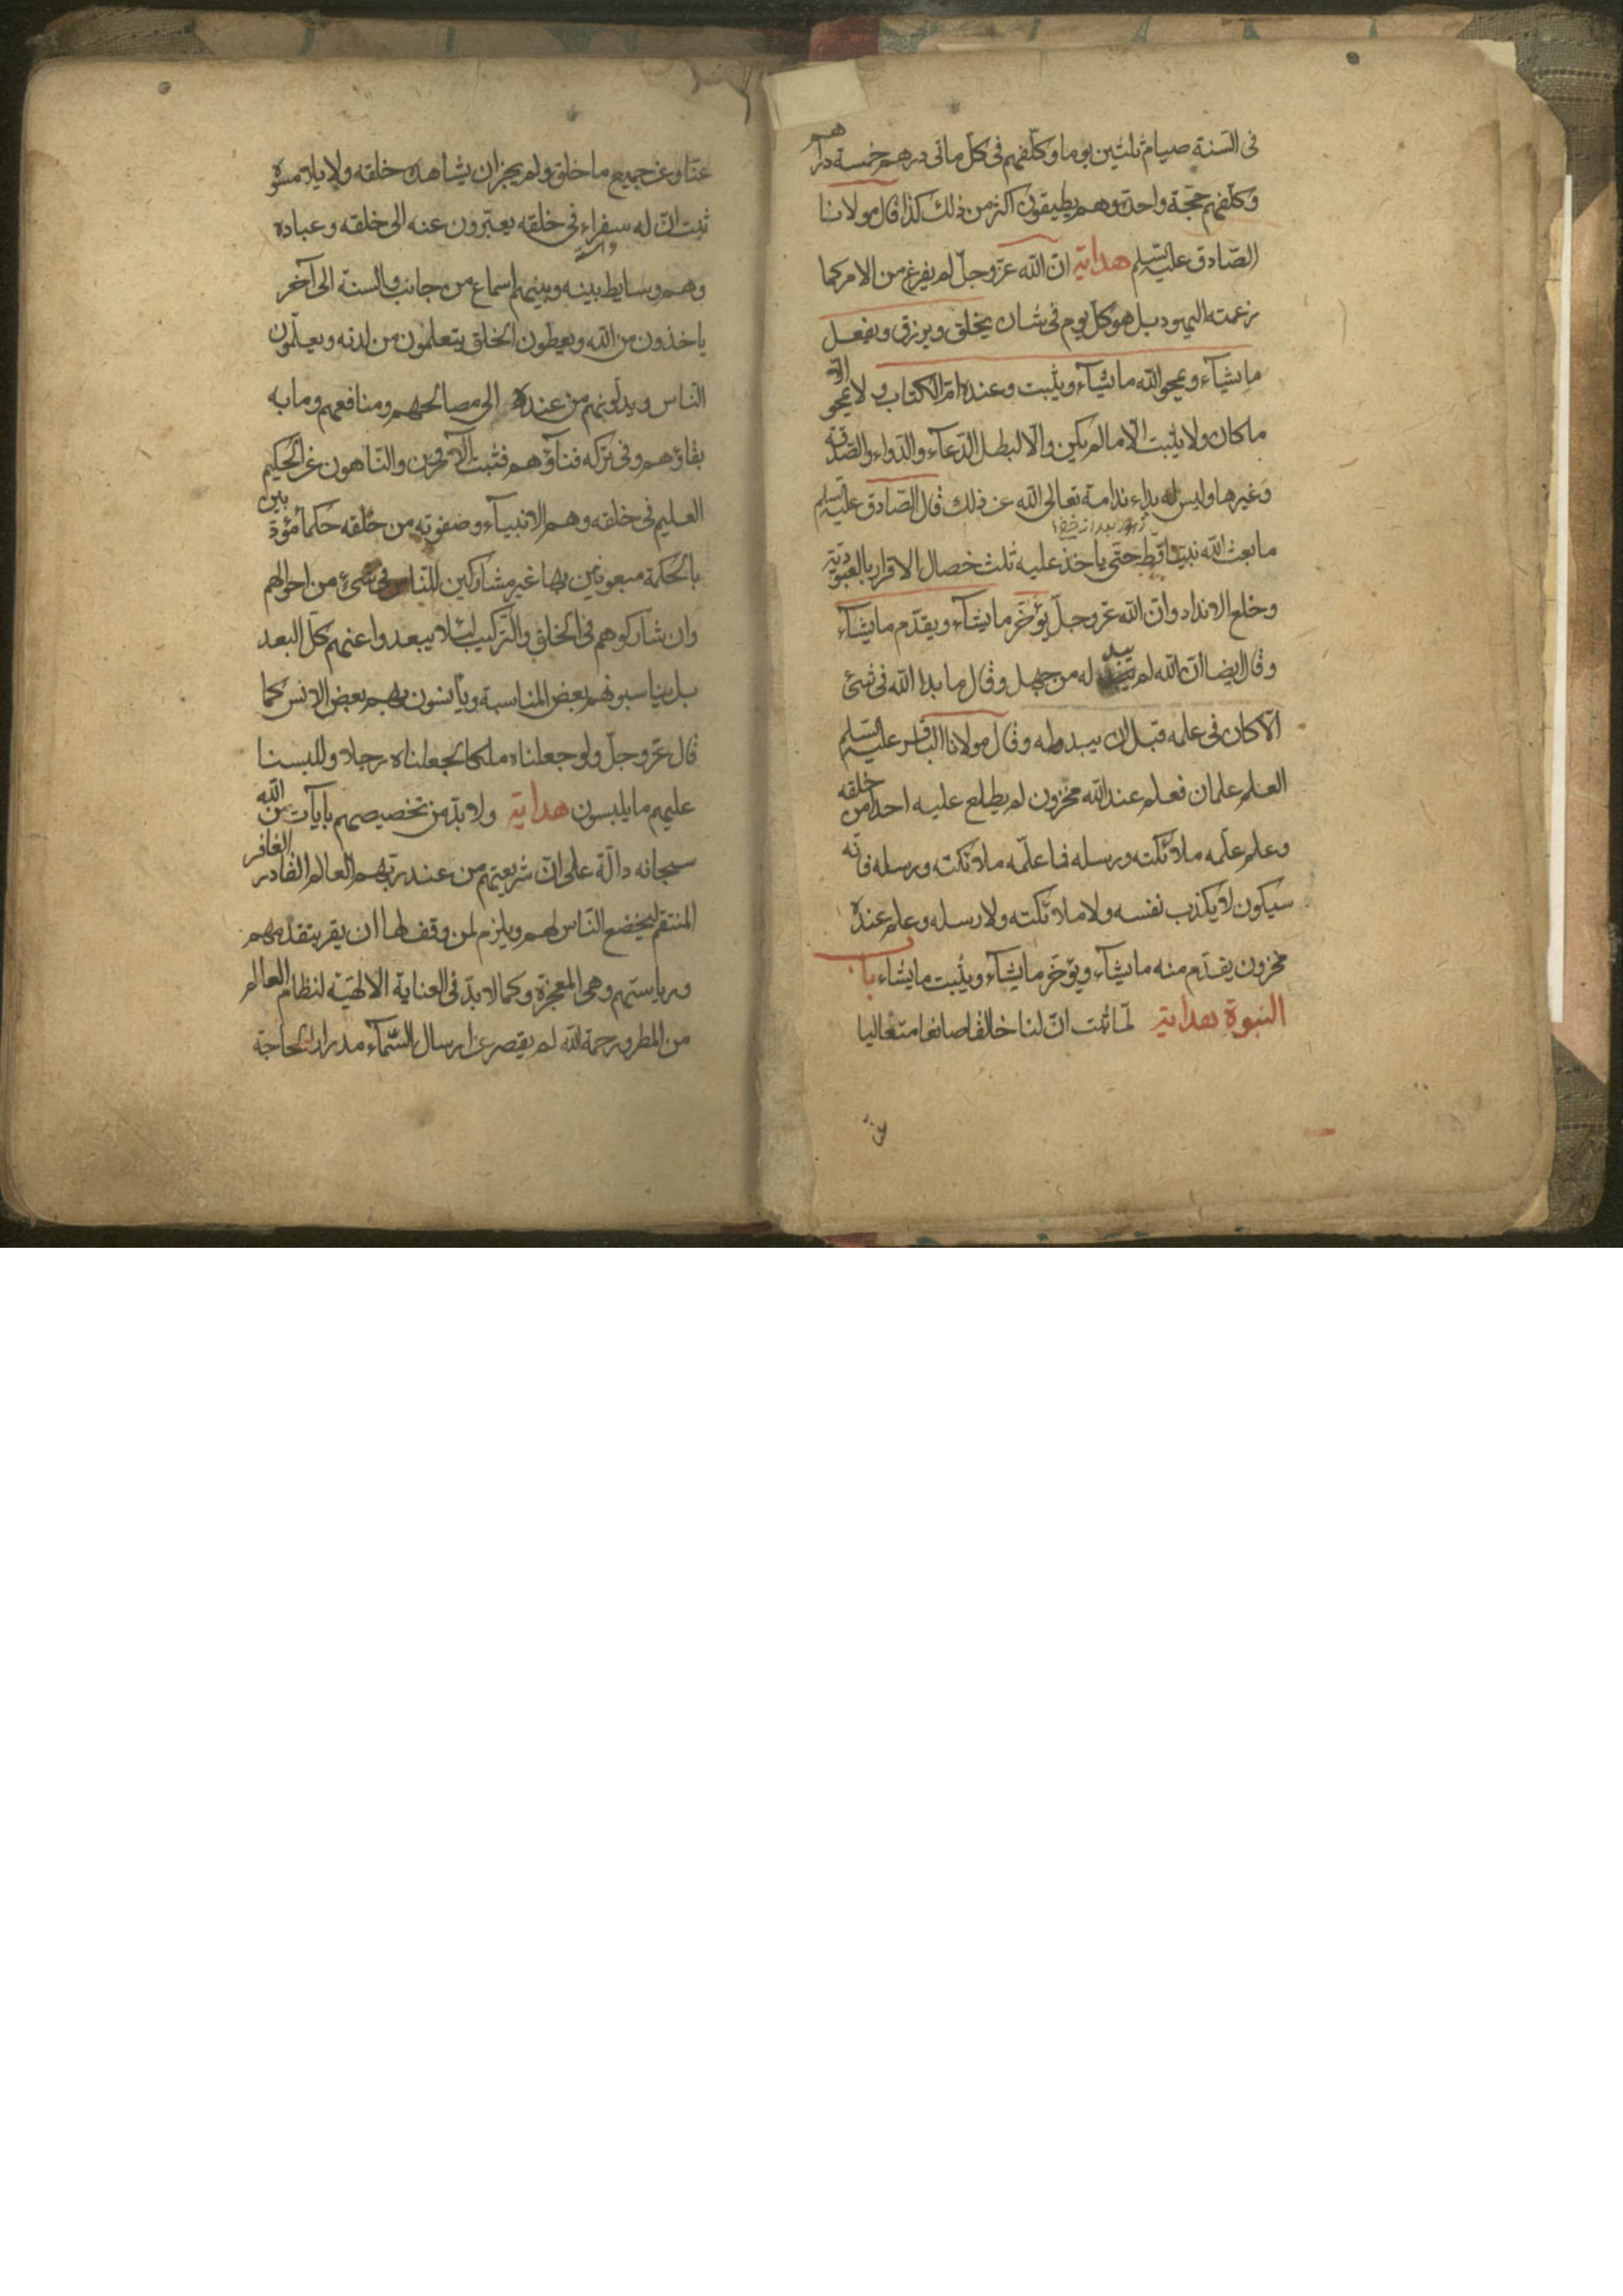 فى السنة صيام ثلثين يوما وكلّفهم فى كلّ مأتى درهم خمسة دراهم
وكلّفهم حجّة واحدة وهم يطيقون اكثر من ذلك كذا قال مولانا
الصّادق عليه السّلم هداية انّ الله عزّ وجلّ لم يفرغ من الامر كما
زعمته اليهود بل هو كلّ يوم فى شان يخلق ويرزق ويفعل
ما يشآء ويمحو الله ما يشآء ويثبت وعنده امّ الكتاب ولا يمحو الّا
ما كان ولا يثبت الّا ما لم يكن والّا لبطل الدّعآء والدّواء والصّدقة
وغيرها وليس له بداء ندامة تعالى الله عن ذلك قال الصّادق عليه السّلم
ما بعث الله نبيّا قطّ حتّى ياخذ عليه ثلث خصال الاقرار بالعبوديّة
وخلع الانداد وانّ الله عزّ وجلّ يؤخّر ما يشآء ويقدّم ما يشآء
وقال ايضا انّ الله لم يبد له من جهل وقال ما بدا لله فى شئ
الّا كان فى علمه قبل ان يبدو له وقال مولانا الباقر عليه السّلم
العلم علمان فعلم عند الله مخزون لم يطلع عليه احدا من خلقه
وعلم علّمه ملائكته ورسله فما علّمه ملائكته ورسله فانّه
سيكون لا يكذب نفسه ولا ملائكته ولا رسله وعلم عنده
مخزون يقدّم منه ما يشآء ويؤخّر ما يشآء ويثبت ما يشاء باب
النبوة هداية لمّا ثبت انّ لنا خالقا صانعا متعاليا
عنّا وعن جميع ما خلق ولم يجز ان يشاهده خلقه ولا يلامسوه
ثبت انّ له سفراء فى خلقه يعبّرون عنه الى خلقه وعباده
وهم وسايط بينه وبينهم اسماع من جانب والسنة الى آخر
ياخذون من الله ويعطون الخلق يتعلمون من لدنه ويعلّمون
النّاس ويدلّونهم من عنده الى مصالحهم ومنافعهم وما به
بقاؤهم وفى تركه فناؤهم فثبت الآمرون والنّاهون عن الحكيم
العليم فى خلقه وهم الانبيآء وصفوته من خلقه حكمآء مؤدّبين
بالحكمة مبعوثين بها غير مشاركين للنّاس فى شئ من احوالهم
وان شاركوهم فى الخلق والتّركيب لئلا يبعدوا عنهم كلّ البعد
بل يناسبونهم بعض المناسبة ويأنسون بهم بعض الانس كما
قال عزّ وجلّ ولو جعلناه ملكا لجعلناه رجلا وللبسنا
عليهم ما يلبسون هداية ولا بدّ من تخصيصهم بآيات من الله
سبحانه دالّة على انّ شريعتهم من عند ربّهم العالم القادر الغافر
المنتقم ليخضع النّاس لهم ويلزم لمن وقف لها ان يقرّ بتقدّمهم
ورياستهم وهى المعجزة وكما لا بدّ فى العناية الالهيّة لنظام العالم
من المطر ورحمة الله لم يقصر عن ارسال السّمآء مدرارا لحاجة